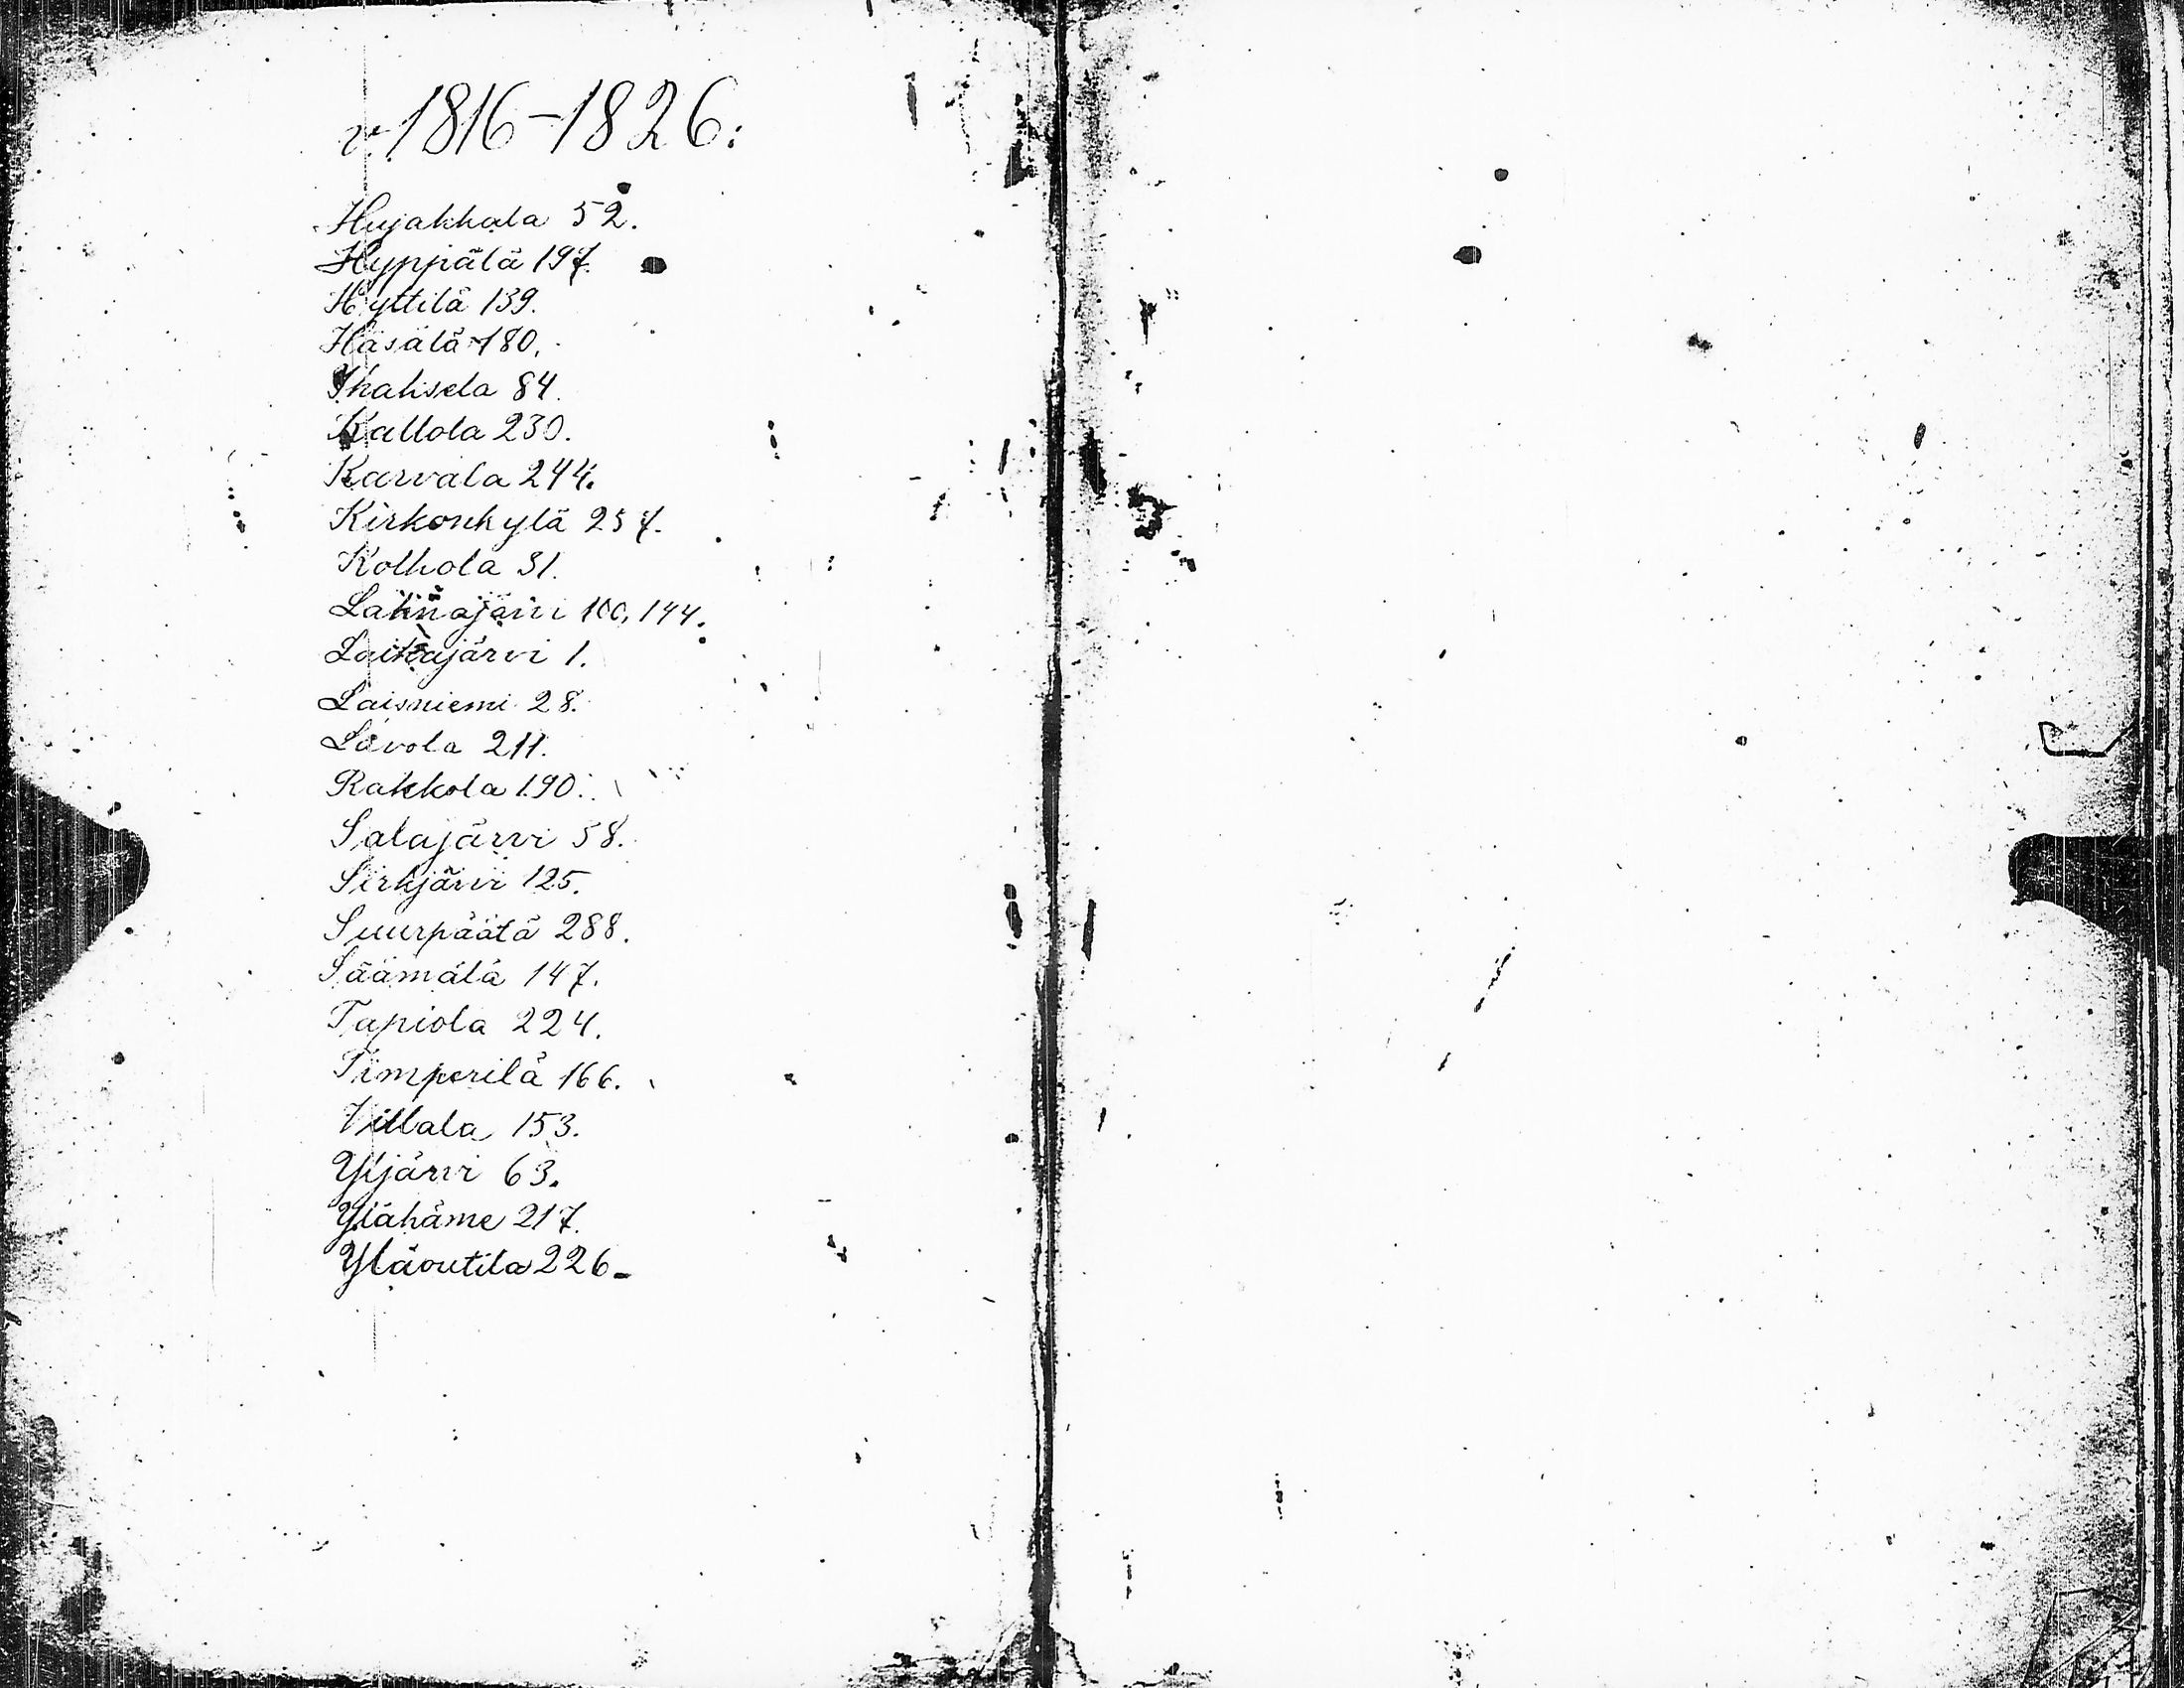 v. 1816-1826:
Hujakkala 52.
Hyppälä 197.
Hyttilä 139.
Häsälä 180.
Ihaksela 84.
Kallola 230.
Karvala 244.
Kirkonkylä 257.
Kolhola 31.
Lahnajärvi 100, 144.
Laihajärvi 1.
Laisniemi 28.
Lavola 211.
Rakkola 190.
Salajärvi 58.
Sirkjärvi 125.
Suurpäälä 288.
Säämälä 147.
Tapiola 224.
Timperilä 166.
Villala 153.
Yijärvi 63.
Ylähäme 217.
Yläoutila 226.